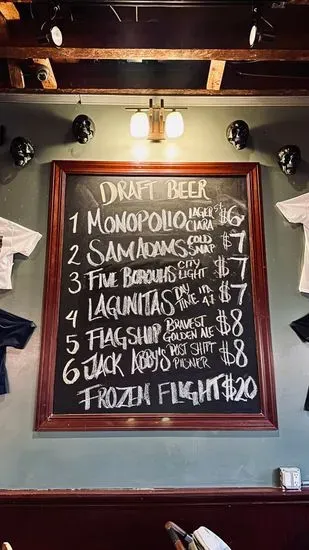 DRAFT BEER
1 MONOPOLIO LAGER CLARA $6
2 SAM ADAMS COLD SNAP $7
3 FIVE BOROUGHS CITY LIGHT $7
4 LAGUNITAS DAY TIME $7
5 FLAGSHIP BRAVEST GOLDEN ALE $8
6 JACK ABBY'S POST SHIFT PILSNER $8
FROZEN FLIGHT $20